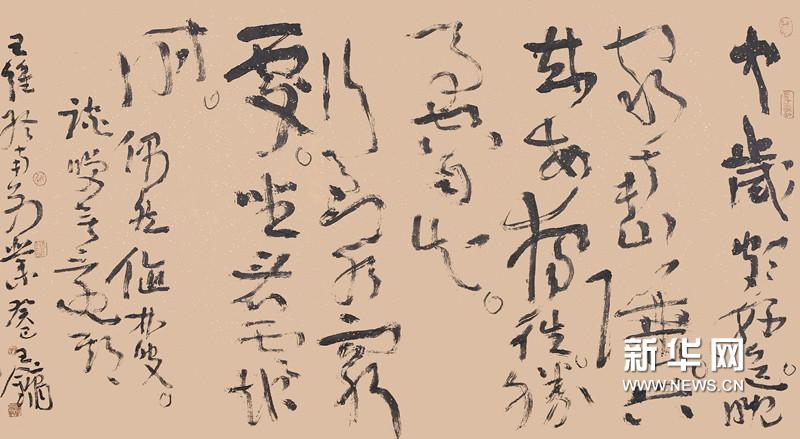 中歲頗好道。晚
家南山陲。興
來每獨往勝
事空自知。
行到水窮
處。坐看雲起
時。偶然值林叟。
談笑無還期
王維終南別業 癸巳 王鏞
新华网
WWW.NEWS.CN